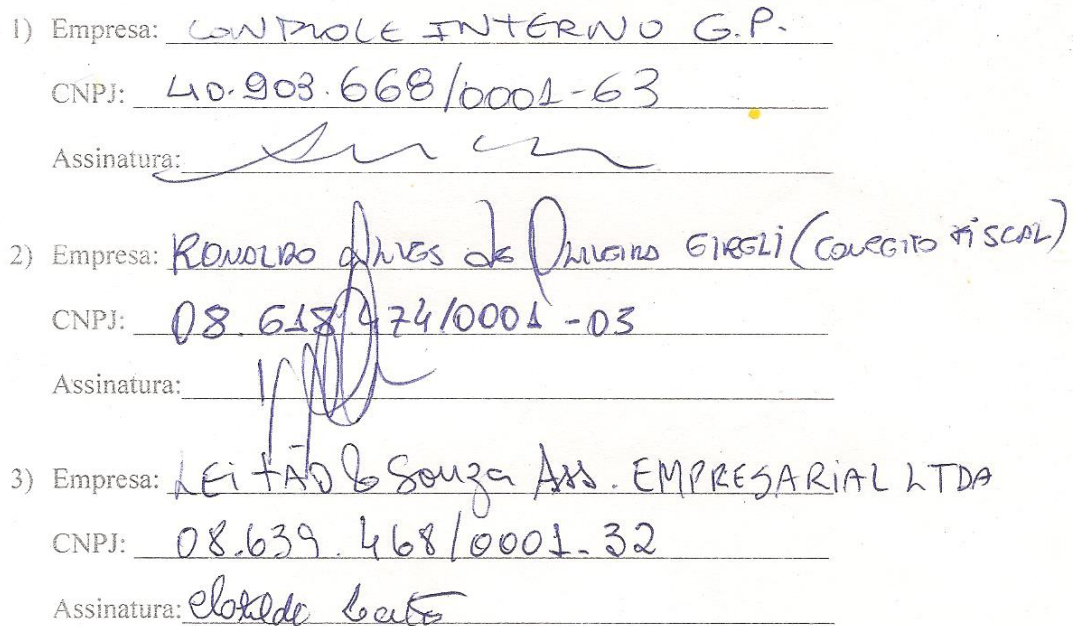 1) Empresa: CONTROLE INTERNO G.P.
CNPJ: 40.903.668/0001-63
Assinatura:
2) Empresa: RONALDO ALVES de OLIVEIRA EIRELI (CORREGITO FISCAL)
CNPJ: 08.618.474/0001-03
Assinatura:
3) Empresa: LEITÃO & Souza Ass. EMPRESARIAL LTDA
CNPJ: 08.639.468/0001-32
Assinatura: Clotilde Leitão